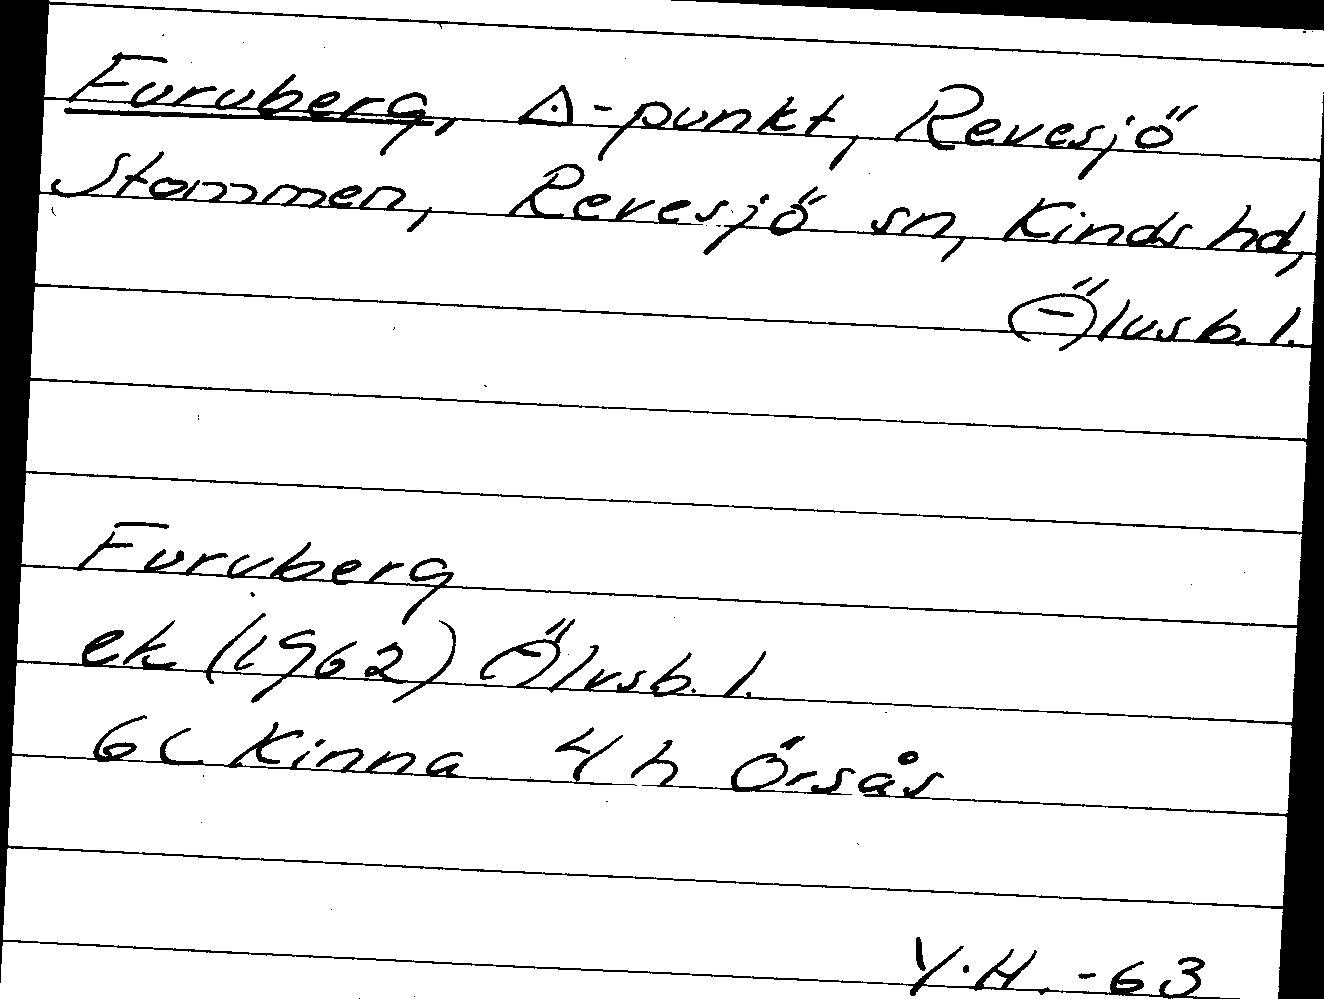 Furuberg, △-punkt, Revesjö
Stommen, Revesjö sn, Kinds hd,
Älvsb. l.
Furuberg
ek (1962) Älvsb. l.
6C Kinna 4h Örsås
Y.H. -63